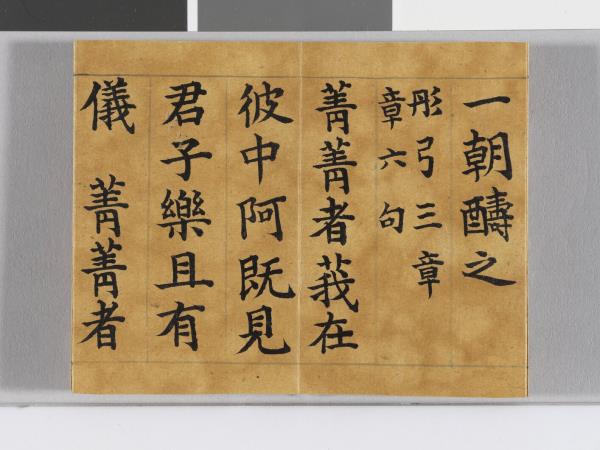 一朝醻之
彤弓三章
章六句
菁菁者莪在
彼中阿既見
君子樂且有
儀 菁菁者